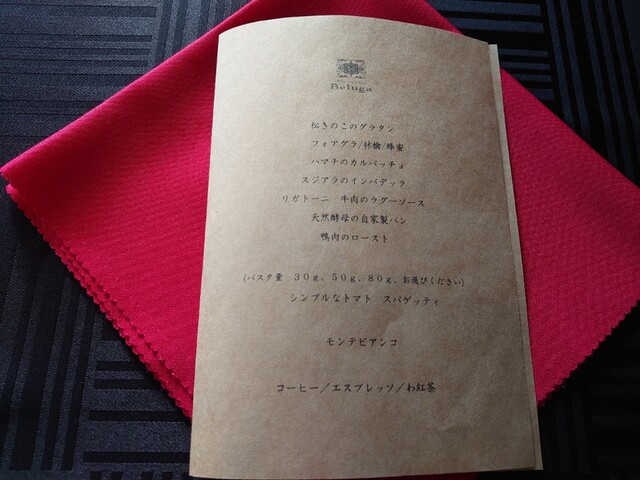 Beluga
松きのこのグラタン
フォアグラ/林檎/蜂蜜
ハマチのカルパッチョ
スジアラのインパデッラ
リガトーニ 牛肉のラグーソース
天然酵母の自家製パン
鴨肉のロースト
(パスタ量 30g、50g、80g、お選びください)
シンプルなトマト スパゲッティ
モンテビアンコ
コーヒー/エスプレッソ/わ紅茶